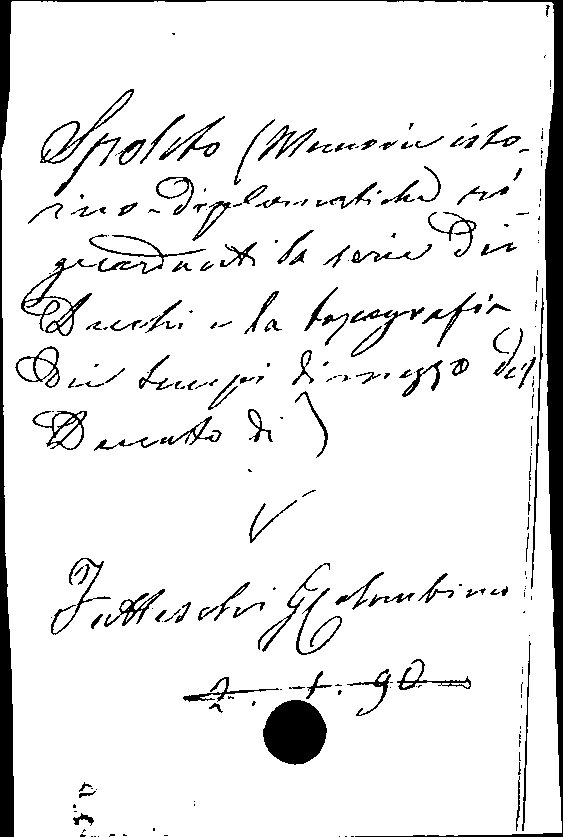 Spoleto (Memorie isto-
rico-diplomatiche ri-
guardanti la serie dei
Duchi e la topografia
dei tempi di mezzo del
Ducato di)
V
Fatteschi G Colombino
2. 1. 90